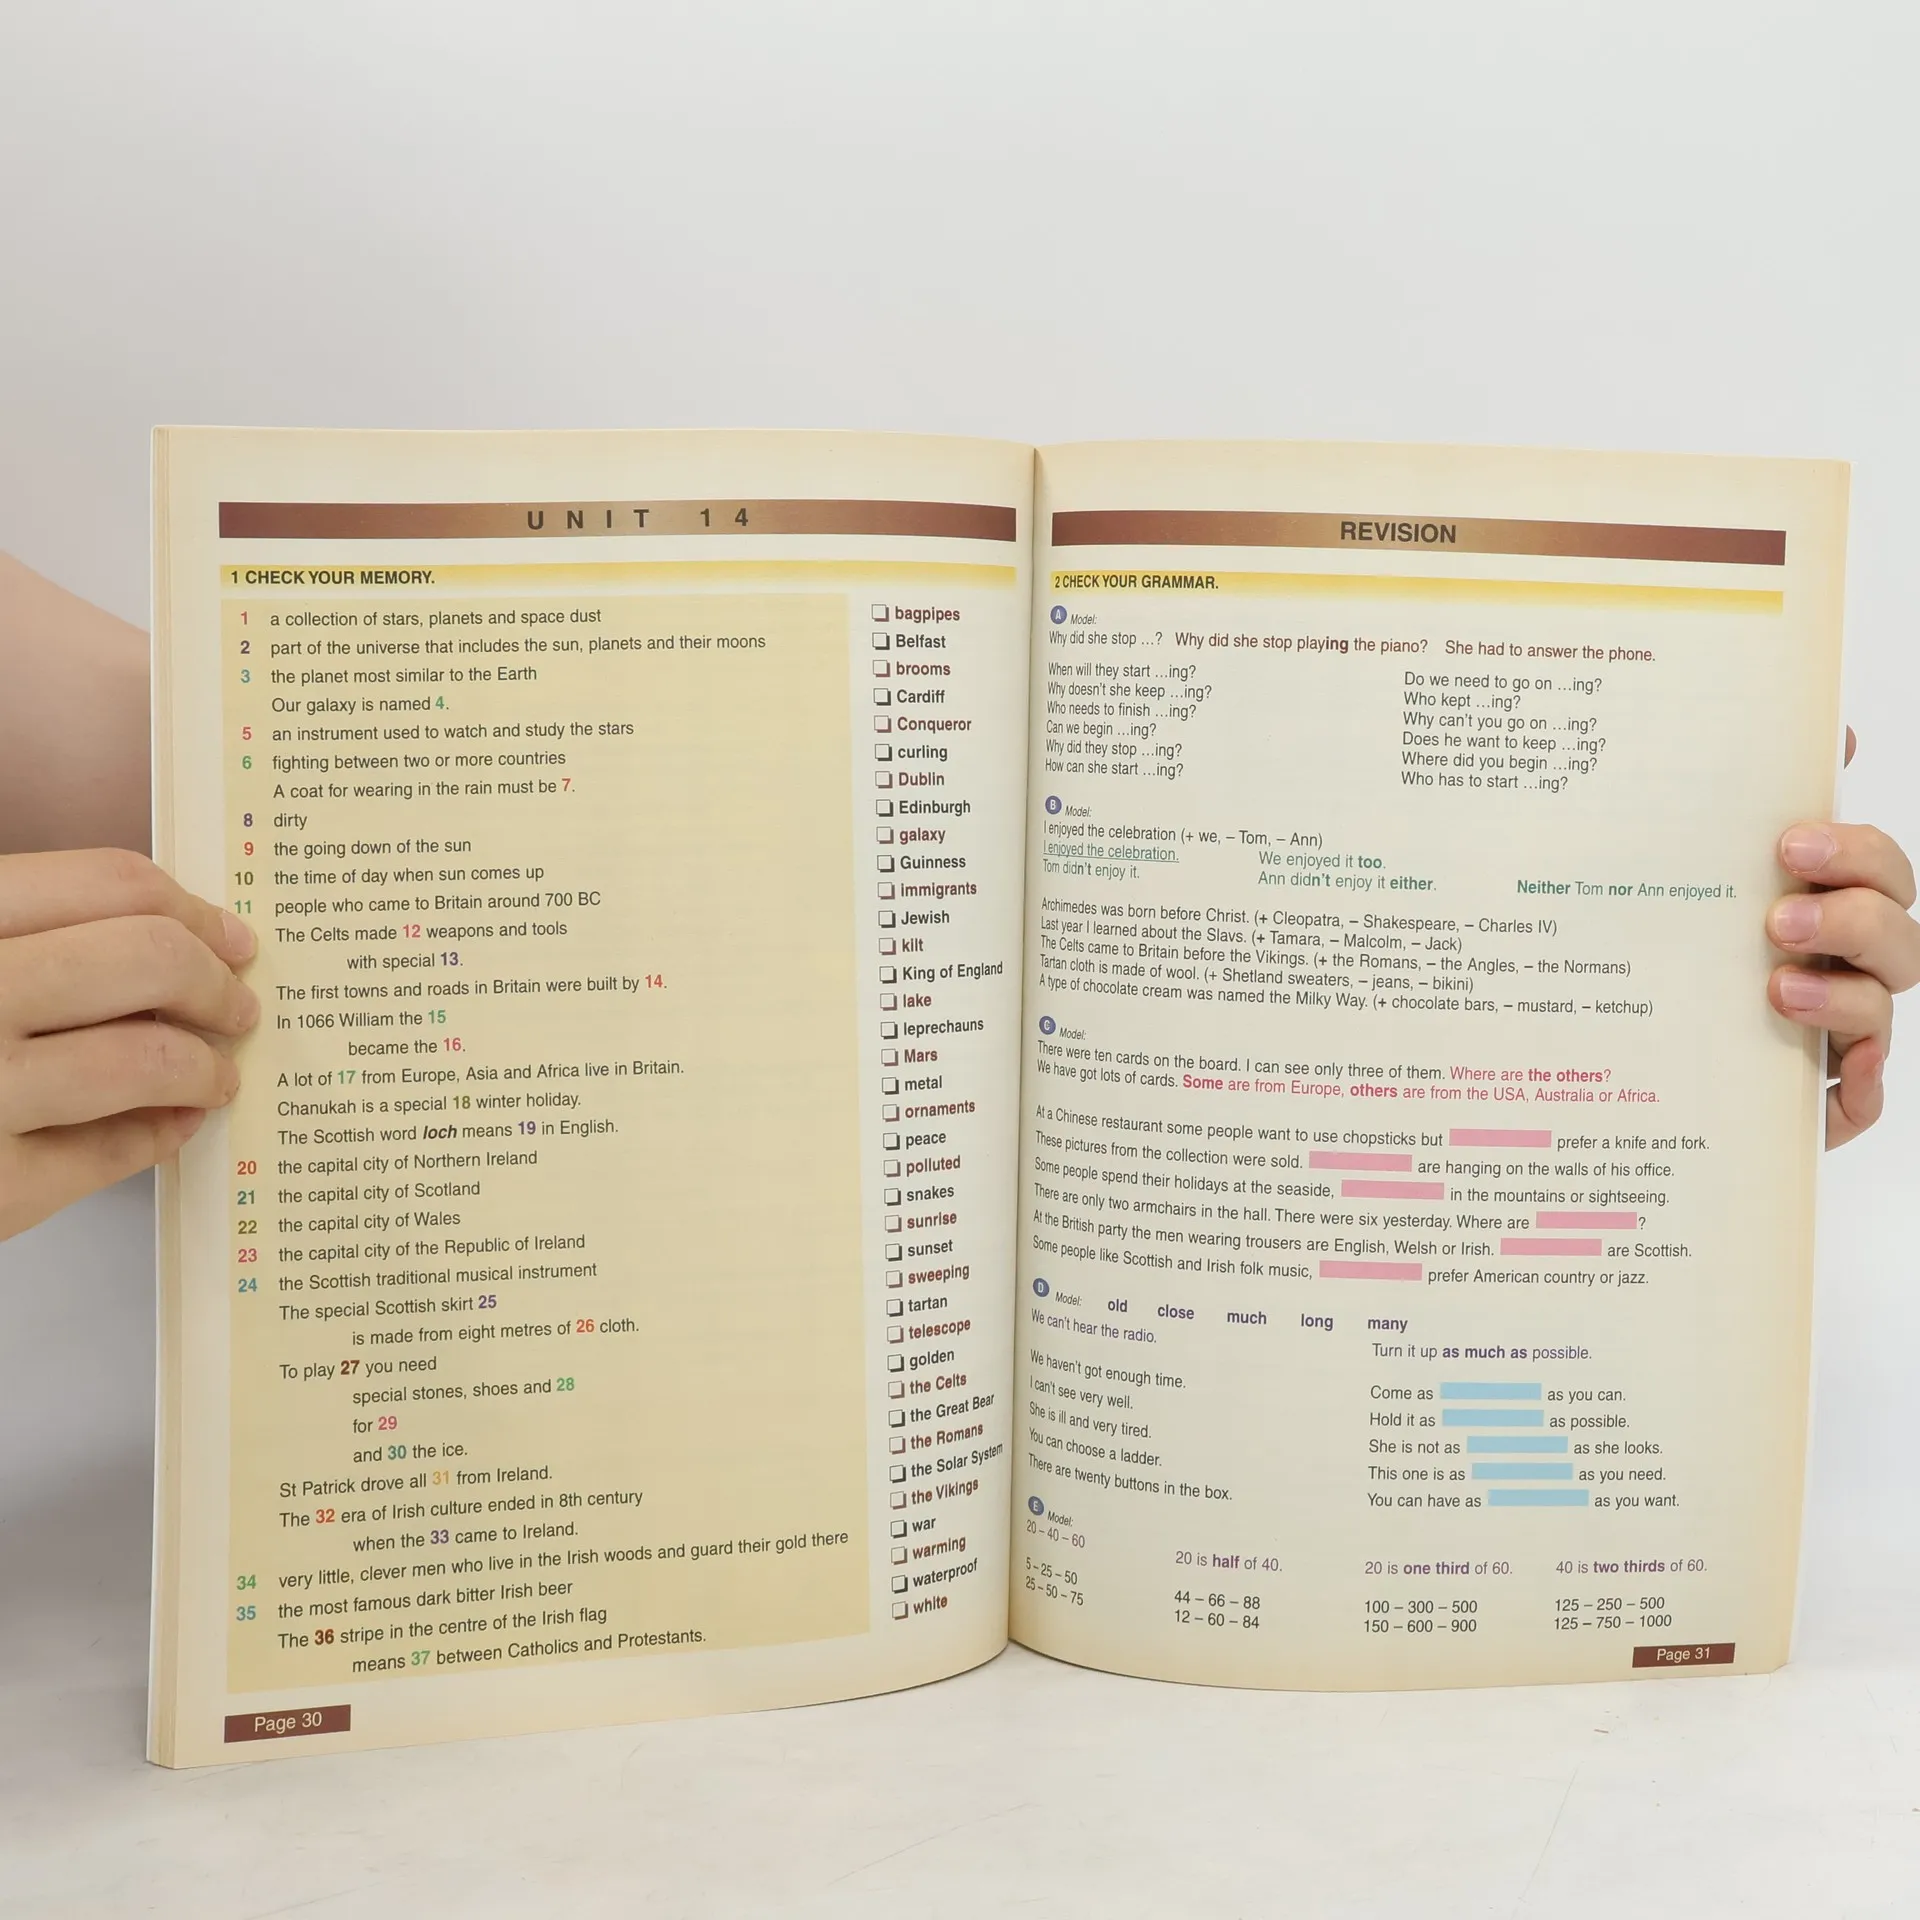 UNIT 14
1 CHECK YOUR MEMORY.
1 a collection of stars, planets and space dust
2 part of the universe that includes the sun, planets and their moons
3 the planet most similar to the Earth
Our galaxy is named 4.
5 an instrument used to watch and study the stars
6 fighting between two or more countries
A coat for wearing in the rain must be 7.
8 dirty
9 the going down of the sun
10 the time of day when sun comes up
11 people who came to Britain around 700 BC
The Celts made 12 weapons and tools
with special 13.
The first towns and roads in Britain were built by 14.
In 1066 William the 15
became the 16.
A lot of 17 from Europe, Asia and Africa live in Britain.
Chanukah is a special 18 winter holiday.
The Scottish word loch means 19 in English.
20 the capital city of Northern Ireland
21 the capital city of Scotland
22 the capital city of Wales
23 the capital city of the Republic of Ireland
24 the Scottish traditional musical instrument
The special Scottish skirt 25
is made from eight metres of 26 cloth.
To play 27 you need
special stones, shoes and 28
for 29
and 30 the ice.
St Patrick drove all 31 from Ireland.
The 32 era of Irish culture ended in 8th century
when the 33 came to Ireland.
34 very little, clever men who live in the Irish woods and guard their gold there
35 the most famous dark bitter Irish beer
The 36 stripe in the centre of the Irish flag
means 37 between Catholics and Protestants.
bagpipes
Belfast
brooms
Cardiff
Conqueror
curling
Dublin
Edinburgh
galaxy
Guinness
immigrants
Jewish
kilt
King of England
lake
leprechauns
Mars
metal
ornaments
peace
polluted
snakes
sunrise
sunset
sweeping
tartan
telescope
golden
the Celts
the Great Bear
the Romans
the Solar System
the Vikings
war
warming
waterproof
white
Page 30
REVISION
2 CHECK YOUR GRAMMAR.
A Model:
Why did she stop ...? Why did she stop playing the piano? She had to answer the phone.
When will they start ...ing?
Why doesn't she keep ...ing?
Who needs to finish ...ing?
Can we begin ...ing?
Why did they stop ...ing?
How can she start ...ing?
Do we need to go on ...ing?
Who kept ...ing?
Why can't you go on ...ing?
Does he want to keep ...ing?
Where did you begin ...ing?
Who has to start ...ing?
B Model:
I enjoyed the celebration (+ we, – Tom, – Ann)
I enjoyed the celebration. We enjoyed it too.
Tom didn't enjoy it. Ann didn't enjoy it either. Neither Tom nor Ann enjoyed it.
Archimedes was born before Christ. (+ Cleopatra, – Shakespeare, – Charles IV)
Last year I learned about the Slavs. (+ Tamara, – Malcolm, – Jack)
The Celts came to Britain before the Vikings. (+ the Romans, – the Angles, – the Normans)
Tartan cloth is made of wool. (+ Shetland sweaters, – jeans, – bikini)
A type of chocolate cream was named the Milky Way. (+ chocolate bars, – mustard, – ketchup)
C Model:
There were ten cards on the board. I can see only three of them. Where are the others?
We have got lots of cards. Some are from Europe, others are from the USA, Australia or Africa.
At a Chinese restaurant some people want to use chopsticks but prefer a knife and fork.
These pictures from the collection were sold. are hanging on the walls of his office.
Some people spend their holidays at the seaside, in the mountains or sightseeing.
There are only two armchairs in the hall. There were six yesterday. Where are ?
At the British party the men wearing trousers are English, Welsh or Irish. are Scottish.
Some people like Scottish and Irish folk music, prefer American country or jazz.
D Model: old close much long many
We can't hear the radio. Turn it up as much as possible.
We haven't got enough time. Come as as you can.
I can't see very well. Hold it as as possible.
She is ill and very tired. She is not as as she looks.
You can choose a ladder. This one is as as you need.
There are twenty buttons in the box. You can have as as you want.
E Model:
20 – 40 – 60 20 is half of 40. 20 is one third of 60. 40 is two thirds of 60.
5 – 25 – 50 44 – 66 – 88 100 – 300 – 500 125 – 250 – 500
25 – 50 – 75 12 – 60 – 84 150 – 600 – 900 125 – 750 – 1000
Page 31